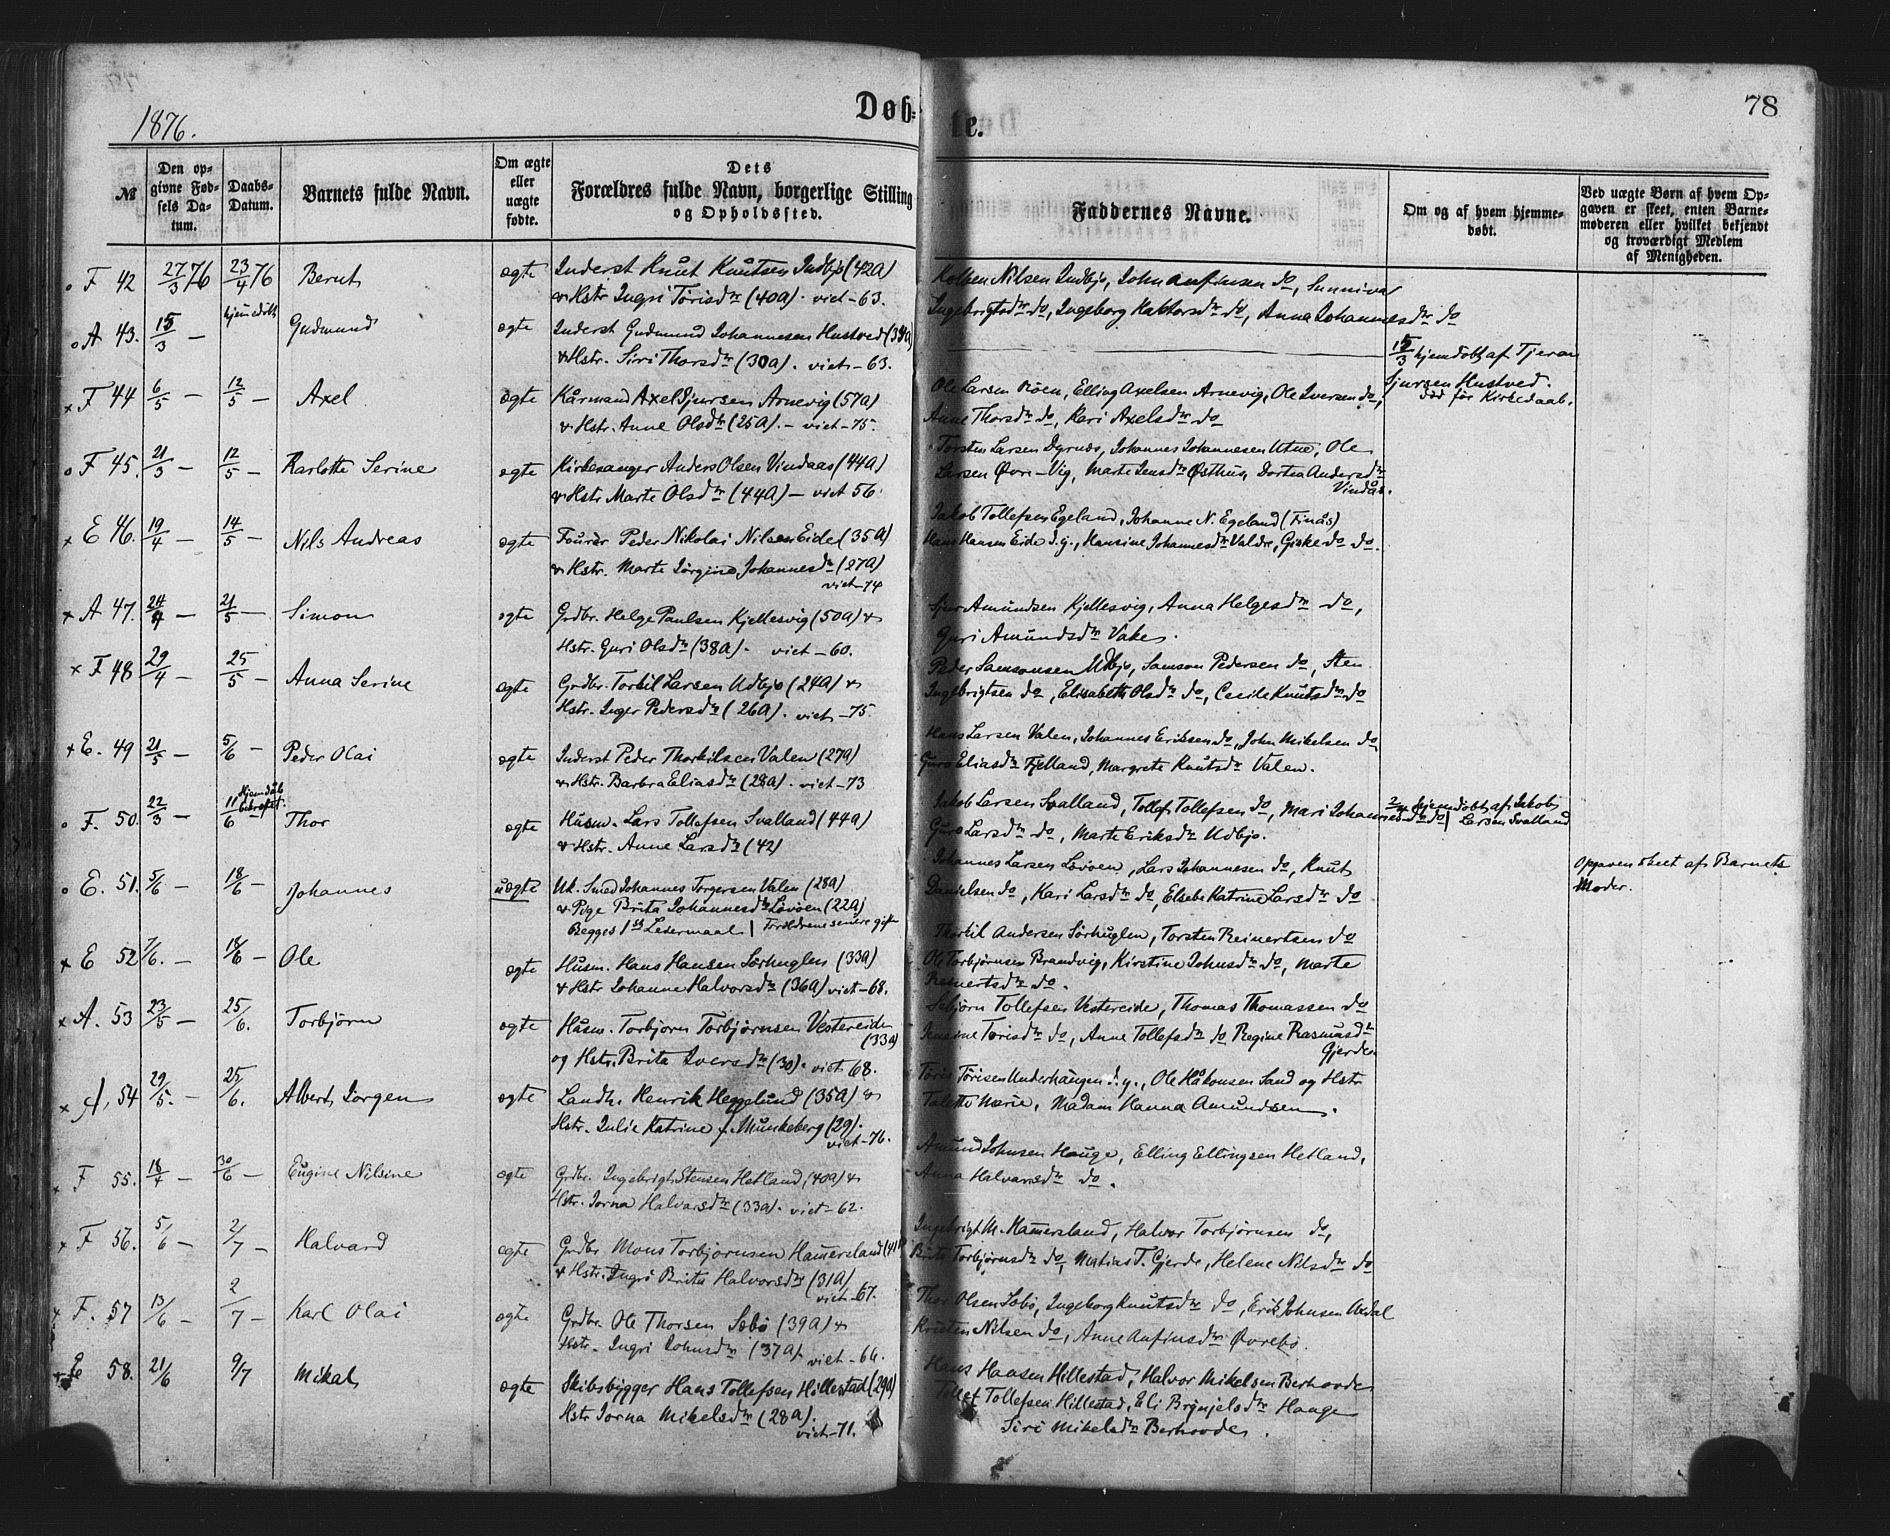 1876.
Døb-
te.
78
№
Den opgivne Fødsels Datum.
Daabs-Datum.
Barnets fulde Navn.
Om ægte eller uægte fødte.
Dets Forældres fulde Navn, borgerlige Stilling og Opholdssted.
Faddernes Navne.
Om og af hvem hjemmedøbt.
Ved uægte Børn af hvem Opgaven er skeet, enten Barnemoderen eller hvilket bekjendt og troværdigt Medlem af Menigheden.
F 42 27/3 76 23/4 76 Bernt ægte Inderst Knut Knutsen Indbjo (42A)
& Hstr Ingri Törisdtr (40A). viet - 63.
Kolben Nilsen Indbjo, John Anfinsen do, Sunniva
Ingebrigtsdtr do, Ingeborg do, Anna Johannesdtr do
A 43. 15/3 - hjemedøbt Gudmund ægte Inderst Gudmund Johannesen Hustved
& Hstr. Siri Thorsdtr (30A). viet - 63.
15/3 hjemdøbt af Tjeran
Sjursen Hustved.
død før Kirkedaab.
F 44 6/5 - 12/5 - Axel ægte Kårmand Axel Sjursen Arnevig (57A)
& Hstr. Anne Olsdtr (25A). - viet - 75.
Ole Larsen Röen, Elling Axelsen Arnevig, Ole Iversen do,
Anne Thorsdtr do, Kari Axelsdtr do
F 45. 21/3 - 12/5 - Karlotte Serine ægte Kirkesanger Anders Olsen Vindaas (44A)
& Hstr Marte Olsdtr (44A) - viet 56.
Torsten Larsen Dyrnæs, Johannes Johannesen Utne, Ole
Larsen Øvre-Vig, Marte Jensdtr Østhus, Dortea Andersdtr
Vindås.
E 46. 19/4 - 14/5 - Nils Andreas ægte Fourer Peder Nikolai Nilsen Eide (35A)
& Hstr. Marte Jörgine Johannesdtr (27A)
viet - 74
Jakob Tollefsen Egeland, Johanne N. Egeland (Finås)
Hans Hansen Eide d.y., Hansine Johannesdtr Valdr, Giske do do.
A 47. 24/4 - 21/5 - Simon ægte Grdbr. Helge Paulsen Kjellesvig (50A) &
Hstr. Guri Olsdtr (38A). viet - 60.
Sjur Amundsen Kjellesvig, Anna Helgesdtr do,
Guri Amundsdtr Vake.
F 48 29/4 - 25/5 - Anna Serine ægte Grdbr. Torkil Larsen Udbjo (24A) &
Hstr. Inger Pedersdtr (26A). viet - 75.
Peder Samsonsen Udbjo, Samson Pedersen do, Sten
Ingebrigtsen do, Elisabeth Olsdtr do, Cecile Knutsdtr do
E. 49 21/5 - 5/6 - Peder Olai ægte Inderst Peder Thorkilsen Valen (27A)
& Hstr. Barbra Eliasdtr (28A). viet - 73
Hans Larsen Valen, Johannes Eriksen do, John Mikelsen do
Guro Eliasdtr Fjelland, Margrete Knutsdtr Valen.
F. 50. 22/3 - 11/6 Hjemdåb bekræftet. Thor ægte Husm. Lars Tollefsen Svalland (44A)
& Hstr. Anne Larsdtr (42)
Jakob Larsen Svalland, Tollef Tollefsen do, Mari Johannesdtr do
Guro Larsdtr do, Marte Eriksdtr Udbjo.
hjemdøbt af Jakob
Larsen Svalland
E. 51. 5/6 - 18/6 - Johannes uægte Uk. Smed Johannes Torgersen Valen (28A)
& Pige Brita Johannesdtr Løvøen (22A)
Begges 1ste Leiermaal | Forældrene senere gift
Johannes Larsen Løvøen, Lars Johannesen do, Knut
Danielsen do, Kari Larsdtr do, Elsebe Katrine Larsdtr do
Opgaven skeet af Barnets
Moder.
E 52 7/6. - 18/6 - Ole ægte Husm. Hans Hansen Sørhuglen (33A)
& Hstr Johanne Halvorsdtr (36A) viet - 68.
Thorkil Andersen Sørhuglen, Torsten Reinertsen do
Ole Torbjørnsen Brandvig, Kirstine Johnsdtr do, Marte
Reinertsdtr do.
A. 53 23/5 - 25/6. Torbjörn ægte Husm. Torbjorn Torbjørnsen Vestereide
(33A)
og Hstr. Brita Iversdtr (30). viet 68.
Sebjörn Tollefsen Vestereide, Thomas Thomassen do
Jensine Törisdtr do, Anne Tollefsdtr do Regine Rasmusdtr
Gjerde
A. 54 29/5. - 25/6. Albert Jörgen ægte Landh. Henrik Heggelund (35A) &
Hstr. Julie Katrine f. Munkeberg (29).
viet - 76.
Töris Törisen Underhaugen d.y., Ole Håkonsen Sand og Hstr
Talette Marie, Madam Hanna Amundsen.
F 55. 18/4 - 30/6 - Eugine Nilsine ægte Grdbr. Ingebrigt Stensen Hetland, (40A) &
Hstr. Jorna Halvarsdtr (33A). viet - 62.
Amund Johnsen Hauge, Elling Ellingsen Hetland,
Anna Halvarsdtr do.
F 56. 5/6 - 2/7 - Halvard ægte Grdbr Mons Torbjørnsen Hamersland
& Hstr. Ingri Brita Halvorsdtr (31A)
viet - 67.
Ingebrigt M. Hamersland, Halvor Torbjørnsen do,
Brita Torbjørnsdtr do, Matias T. Gjerde, Helene Nilsdtr do
F. 57 13/6 - 2/7 - Karl Olai ægte Grdbr. Ole Thorsen Sæbö (39A) &
Hstr. Ingri Johnsdtr (37A). viet - 64.
Thor Olsen Sæbö, Ingeborg Knutsdtr do, Erik Johnsen Axdal
Kristen Nilsen do, Anne Anfinsdtr Øvrebø.
E 58. 21/6 9/7 Mikal ægte Skibsbygger Hans Tollefsen Hillestad (29A)
Hstr Jorna Mikelsdtr (28A).
viet - 71.
Hans Hansen Hillestad, Halvor Mikelsen Berhovde
Tollef Tollefsen Hillestad, Eli Brynjelsdtr Hauge
Siri Mikelsdtr Berhovde.